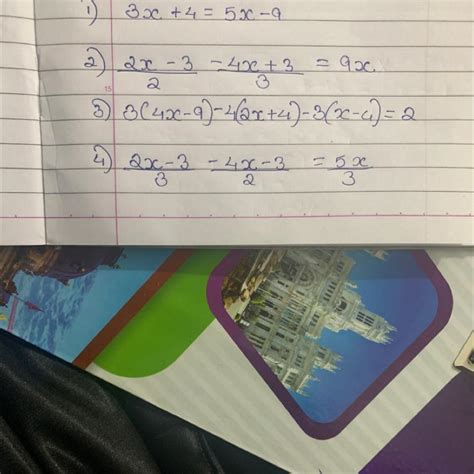 1) 3x + 4 = 5x - 9
2) 2x - 3 / 2 - 4x + 3 / 3 = 9x
15
3) 3(4x - 9) - 4(2x + 4) - 3(x - 4) = 2
4) 2x - 3 / 3 - 4x - 3 / 2 = 5x / 3